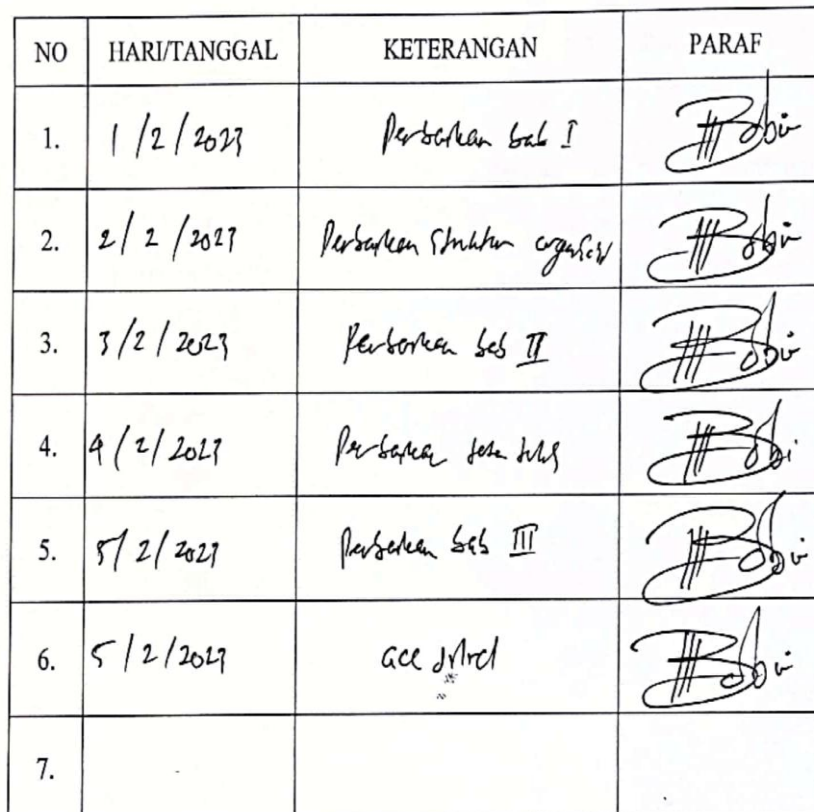 NO HARI/TANGGAL KETERANGAN PARAF
1. 1/2/2023 Perbaikan bab I
2. 2/2/2023 Perbaikan Struktur organisasi
3. 3/2/2023 Perbaikan bab II
4. 4/2/2023 Perbaikan
5. 5/2/2023 Perbaikan bab III
6. 5/2/2023 acc
7.